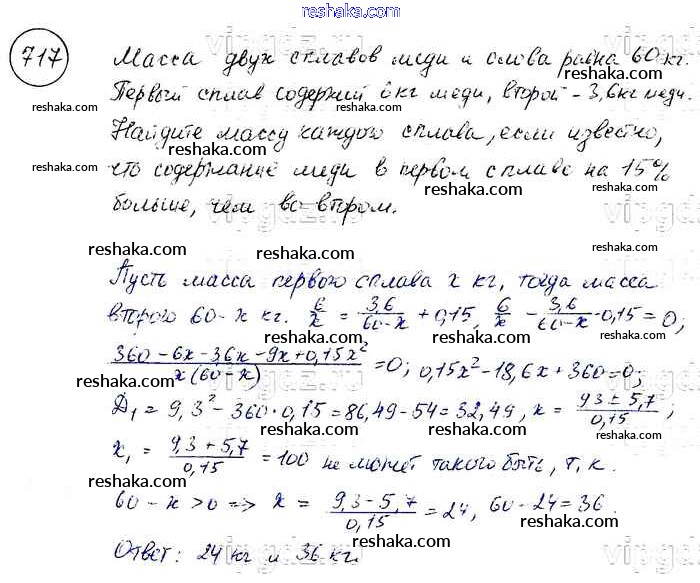 reshaka.com
717
Масса двух сплавов меди и олова равна 60 кг.
reshaka.com reshaka.com
Первый сплав содержит 6 кг меди, второй - 3,6 кг меди.
reshaka.com reshaka.com reshaka.com
Найдите массу каждого сплава, если известно,
reshaka.com
что содержание меди в первом сплаве на 15%
reshaka.com reshaka.com
больше, чем во втором.
reshaka.com
vipgdz.ru
reshaka.com reshaka.com
Пусть масса первого сплава x кг, тогда масса
второго 60-x кг. 6/x = 3,6/(60-x) + 0,15, 6/x - 3,6/(60-x) · 0,15 = 0;
reshaka.com reshaka.com reshaka.com
(360 - 6x - 3,6x - 9x + 0,15x²)/(x(60-x)) = 0; 0,15x² - 18,6x + 360 = 0;
reshaka.com reshaka.com
Д₁ = 9,3² - 360 · 0,15 = 86,49 - 54 = 32,49, x = (9,3 ± 5,7)/0,15;
reshaka.com reshaka.com reshaka.com
x₁ = (9,3 + 5,7)/0,15 = 100 не может такого быть, т.к.
reshaka.com reshaka.com
60 - x > 0 => x = (9,3 - 5,7)/0,15 = 24, 60 - 24 = 36.
reshaka.com reshaka.com reshaka.com
Ответ: 24 кг и 36 кг.
reshaka.com reshaka.com